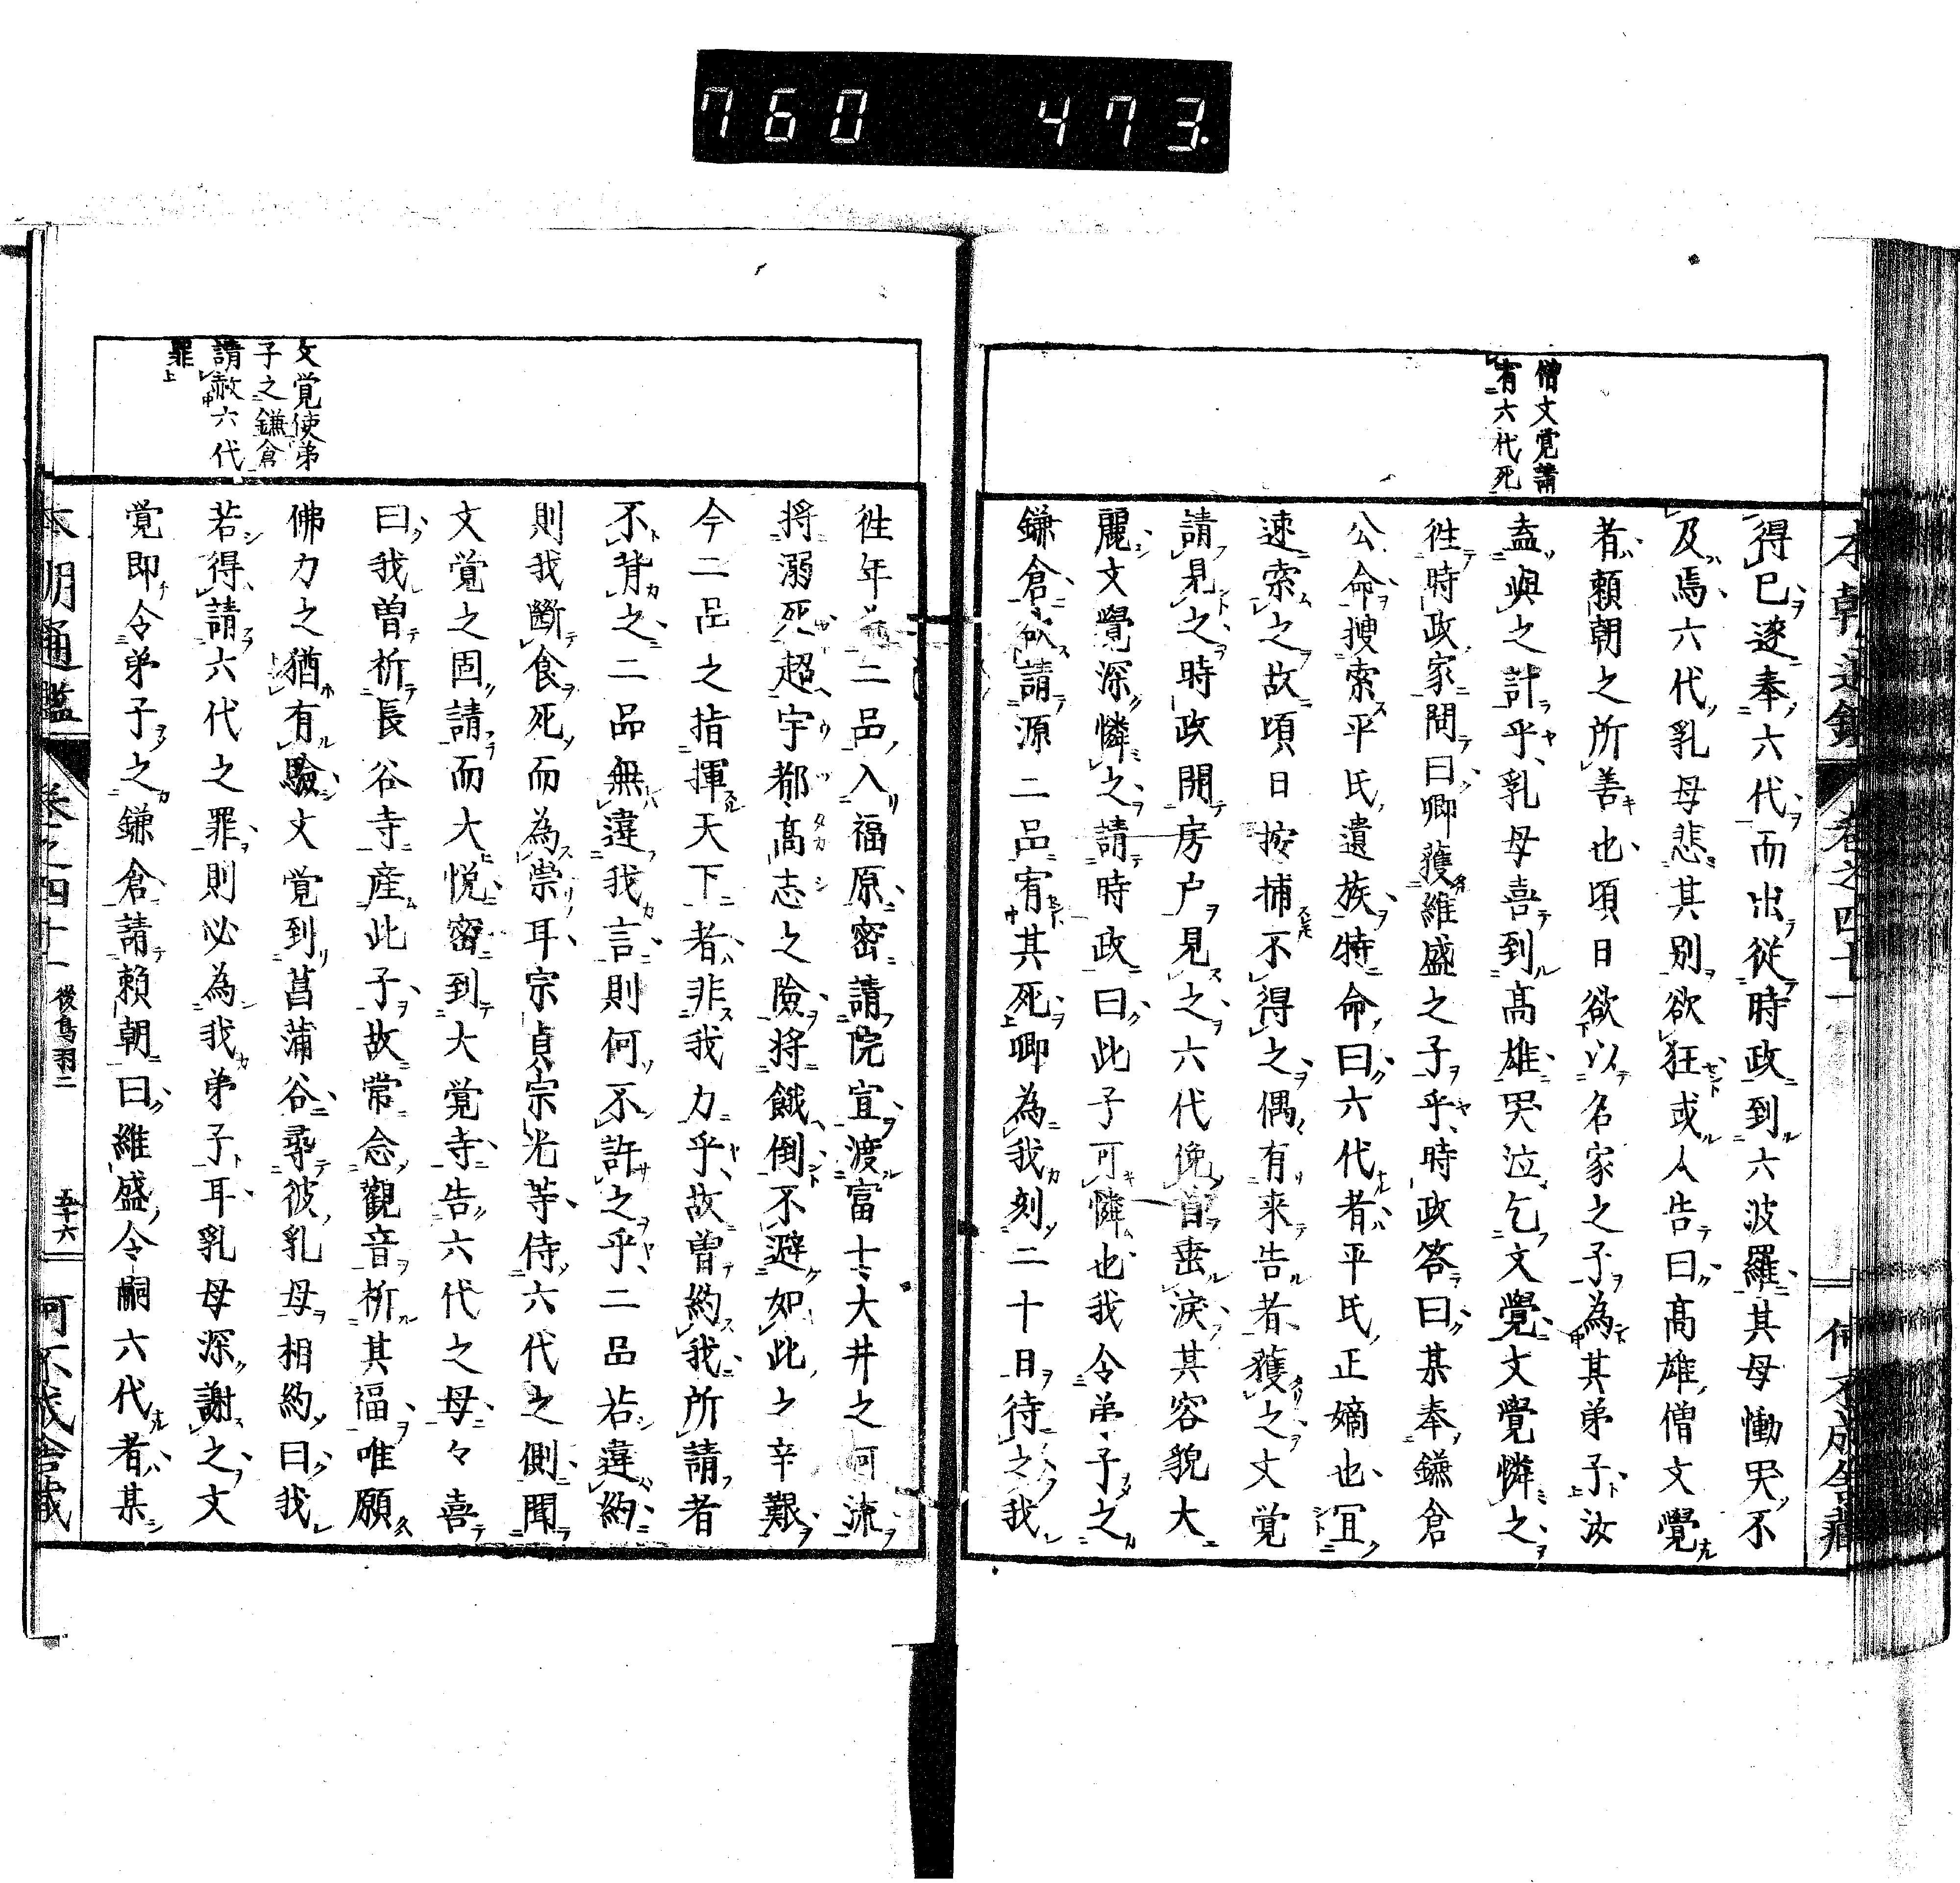 760 473.
僧文覚請
宥六代死
得已遂奉六代而出從時政到六波羅其母慟哭不
及焉六代乳母悲其别欲狂或人告曰髙雄僧文覺
者頼朝之所善也頃日欲以名家之子為其弟子汝
盍與之計乎乳母喜到髙雄哭泣乞文覺文覺憐之
徃時政家問曰卿獲維盛之子乎時政答曰某奉鎌倉
公命搜索平氏遺族特命曰六代者平氏正嫡也冝
速索之故頃日按捕不得之偶有来告者獲之文覚
請見之時政開房户見之六代俛首垂淚其容貌大
麗文覺深憐之請時政曰此子可憐也我令弟子之
鎌倉欲請源二品宥其死卿為我刻二十日待之我
文覚使弟
子之鎌倉
請赦六代
罪
徃年為二品入福原密請院宣渡富士大井之河流
将溺死超宇都髙志之險将餓倒不避如此之辛艱
今二品之指揮天下者非我力乎故曽約我所請者
不背之二品無違我言則何不許之乎二品若違約
則我斷食死而為祟耳宗貞宗光等侍六代之側聞
文覚之固請而大悦密到大覚寺告六代之母々喜
曰我曽祈長谷寺産此子故常念觀音祈其福唯願
佛力之猶有驗文覚到菖蒲谷尋彼乳母相約曰我
若得請六代之罪則必為我弟子耳乳母深謝之文
覚即令弟子之鎌倉請頼朝曰維盛令嗣六代者某
本朝通鑑 卷之四十一 後鳥羽二 五十六